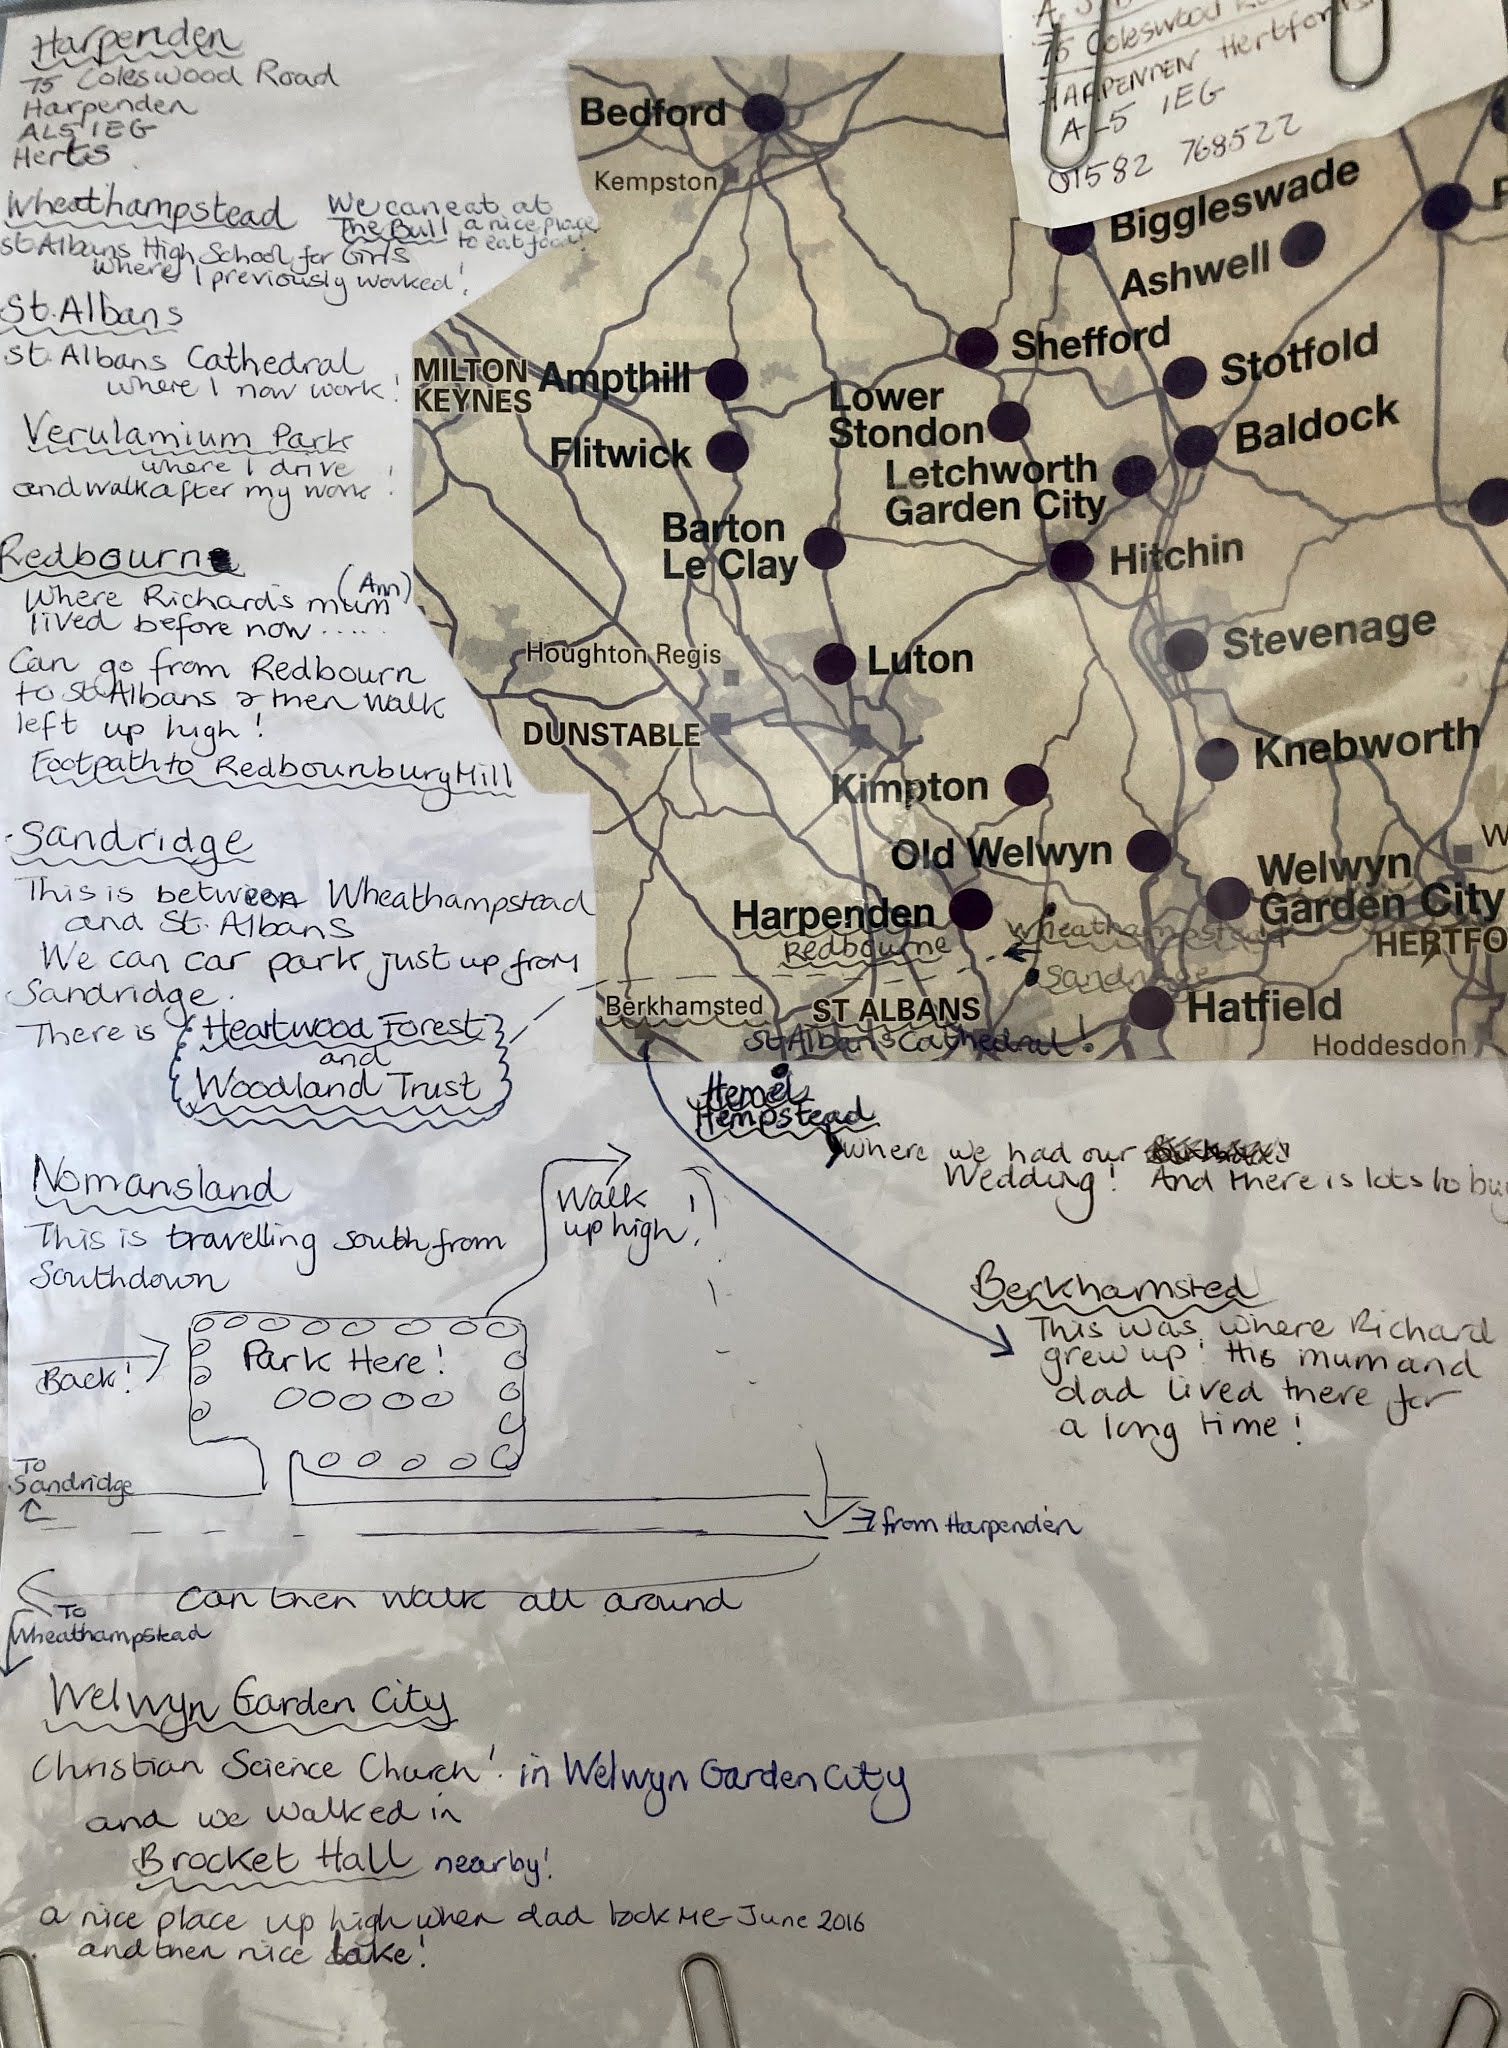 Harpenden
75 Coleswood Road
Harpenden
AL5 1EG
Herts
Wheathampstead
We can eat at
The Bull a nice place
to eat food!
St Albans High School for Girls
where I previously worked!
St. Albans
St Albans Cathedral
where I now work!
Verulamium Park
where I drive
and walk after my work!
Redbourn
Where Richard's mum (Ann)
lived before now .....
Can go from Redbourn
to St Albans & then walk
left up high!
Footpath to Redbournbury Mill
Sandridge
This is between Wheathampstead
and St. Albans
We can car park just up from
Sandridge.
There is Heartwood Forest
and
Woodland Trust
Nomansland
This is travelling south from
Southdown
Walk
up high!
Back!
Park Here!
To
Sandridge
from Harpenden
Can then walk all around
To
Wheathampstead
Welwyn Garden City
Christian Science Church! in Welwyn Garden City
and we walked in
Brocket Hall nearby!
a nice place up high when dad took me - June 2016
and then nice lake!
75 Coleswood
HARPENDEN
AL5 1EG
01582 768522
Bedford
Kempston
Biggleswade
Ashwell
Shefford
Stotfold
MILTON
KEYNES
Ampthill
Lower
Stondon
Baldock
Flitwick
Letchworth
Garden City
Barton
Le Clay
Hitchin
Stevenage
Houghton Regis
Luton
DUNSTABLE
Knebworth
Kimpton
Old Welwyn
Welwyn
Garden City
Harpenden
Redbourne
Wheathampstead
HERTFO
Sandridge
Berkhamsted
ST ALBANS
Hatfield
St Albans Cathedral!
Hoddesdon
Hemel
Hempstead
where we had our
Wedding! And there is lots to buy
Berkhamsted
This was where Richard
grew up! His mum and
dad lived there for
a long time!